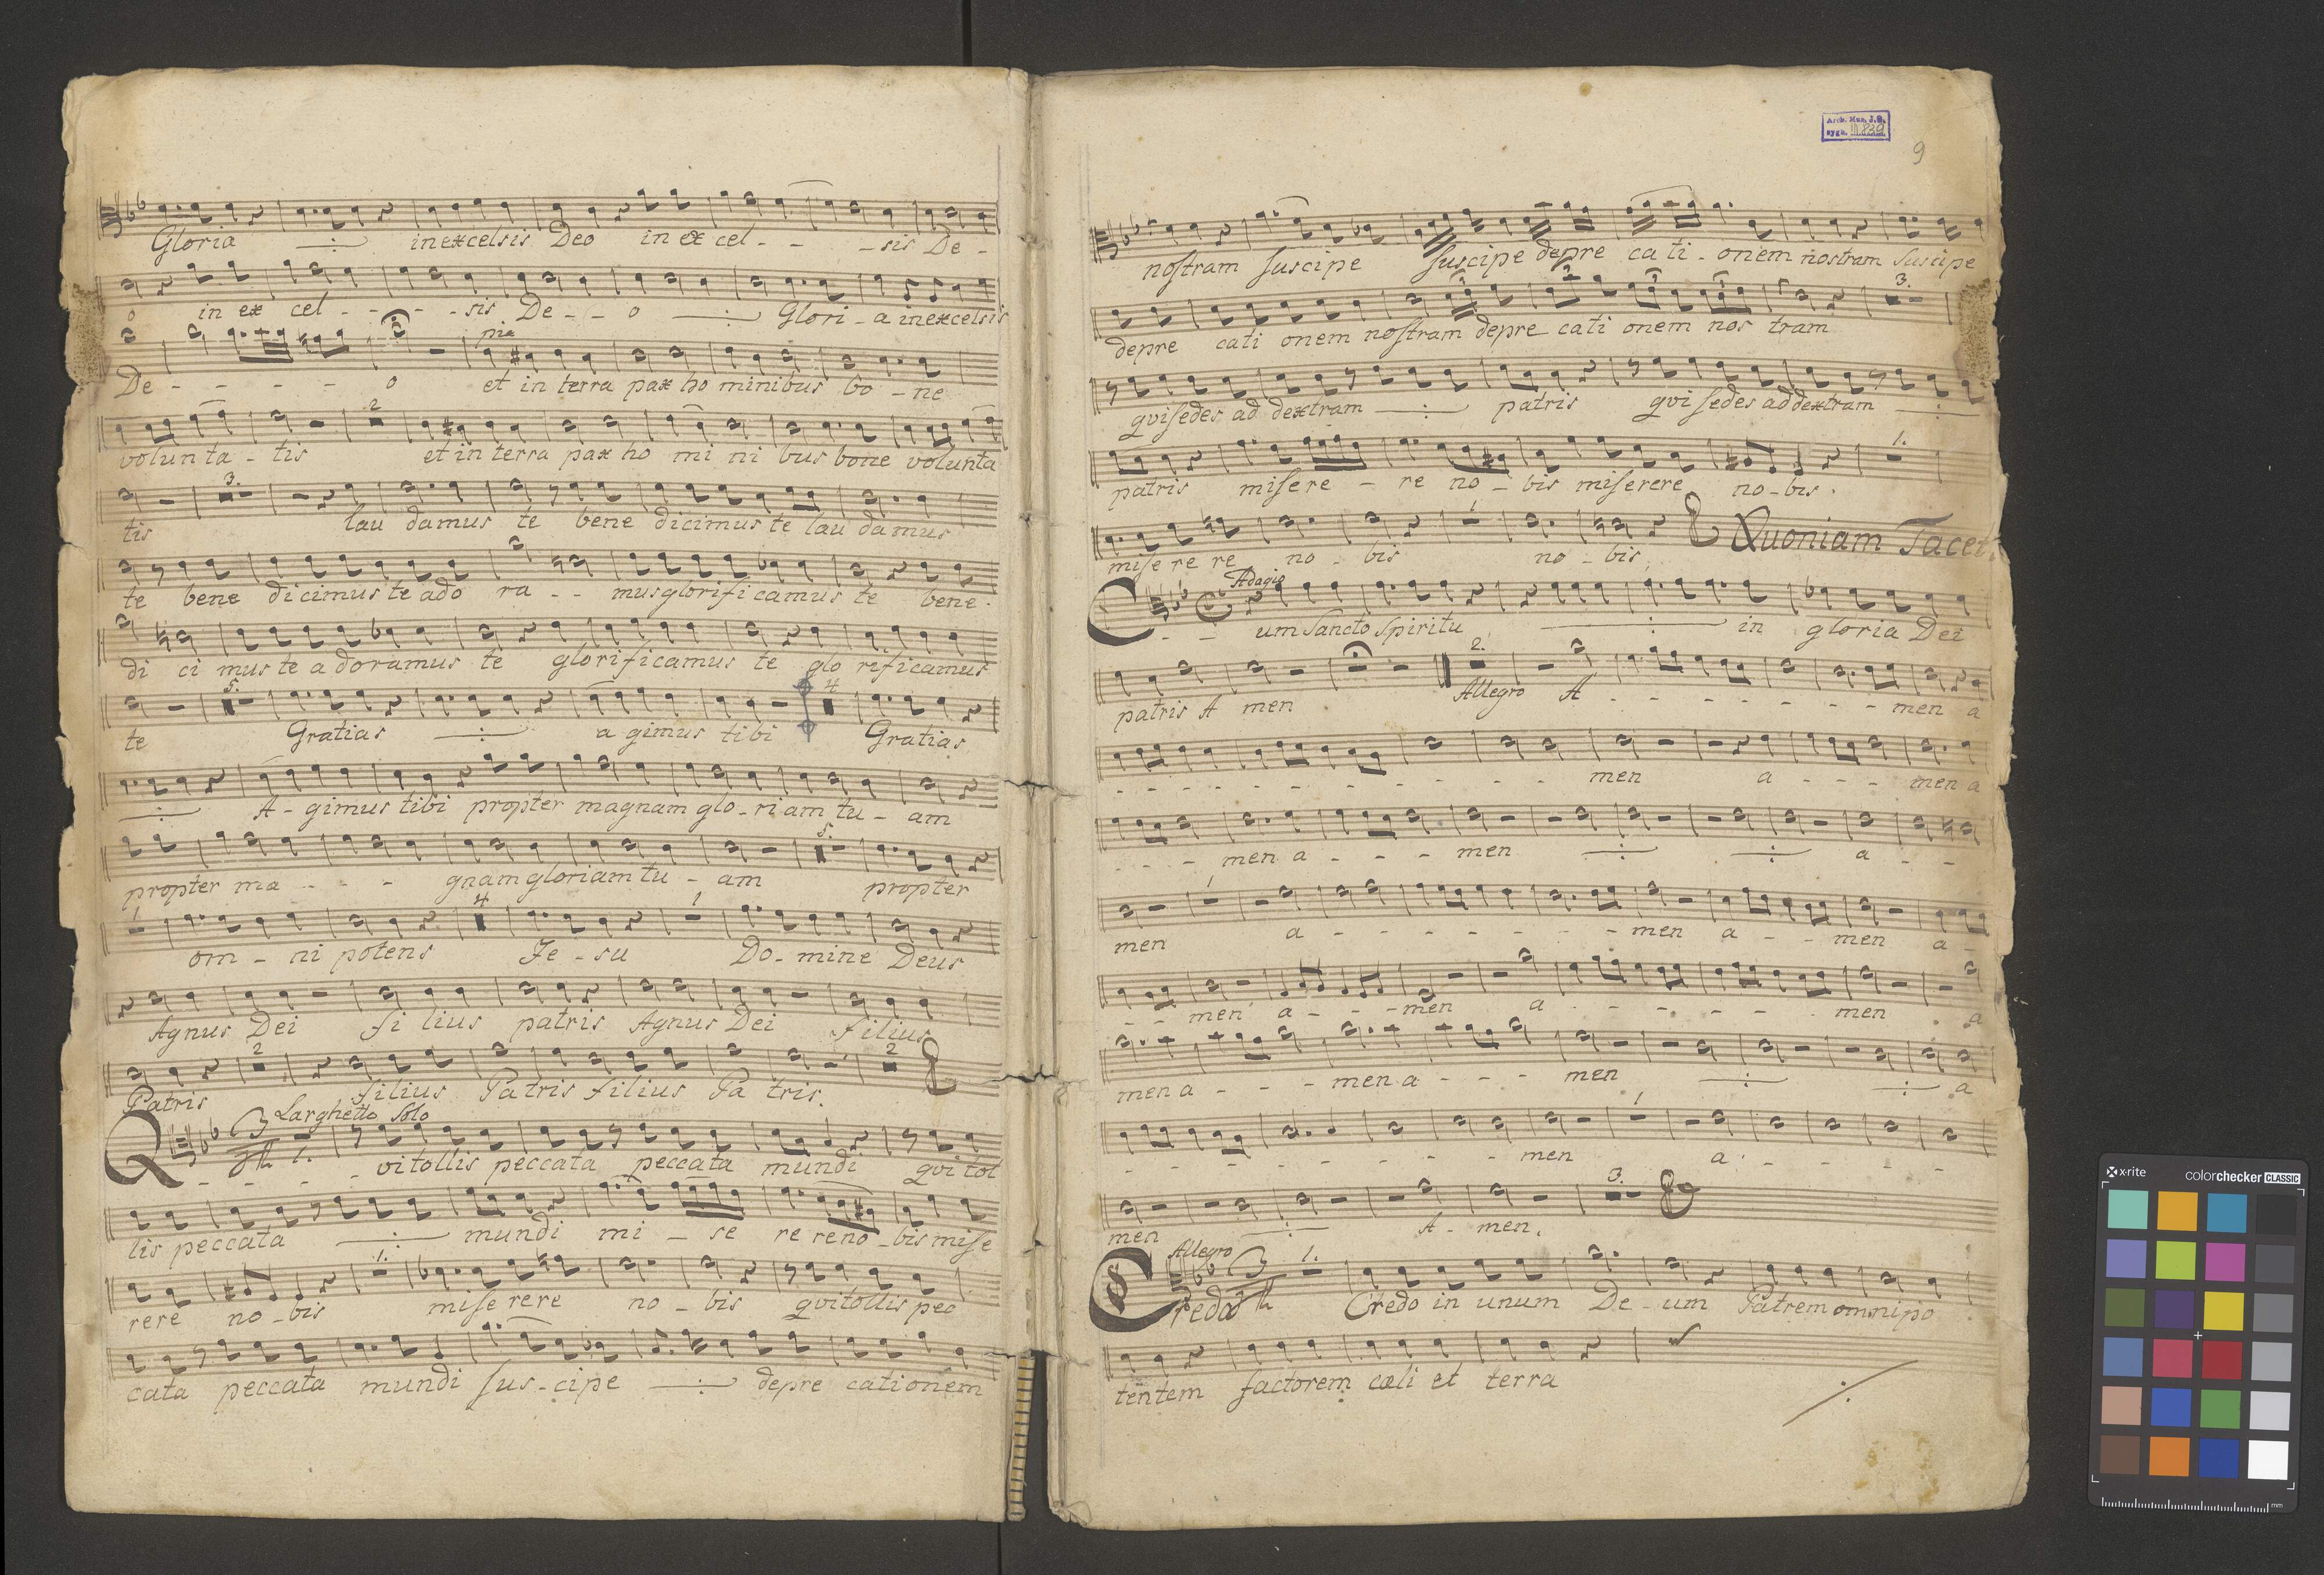 Gloria in excelsis Deo in ex cel - - - sis De -
o in ex cel - - - - sis De - - o Glori - a in excelsis
De - - - - - o pia et in terra pax ho minibus bo - ne
2
volun ta - tis et in terra pax ho mi ni bus bone volunta
3.
tis lau damus te bene dicimus te lau damus
te bene dicimus te ado ra - - mus glorificamus te bene -
di ci mus te adoramus te glorificamus te glo rificamus
5. 4
te Gratias a gimus tibi Gratias
A - gimus tibi propter magnam glo - riam tu - am
5.
propter ma - - - gnam gloriam tu - am propter
1 4 1
om - ni potens Je - su Do - mine Deus
Agnus Dei fi lius patris Agnus Dei filius
2 2
Patris filius Patris filius Pa tris.
Larghetto Solo
3 1.
Q - - - - vi tollis peccata peccata mundi qvi tol
lis peccata mundi mi - se re re no - bis mise
1.
rere no - bis miserere no - bis qvi tollis pec
cata peccata mundi sus - cipe depre cationem
Arch. Muz. J. G.
sygn. III.829
9
noſtram ſuscipe ſuscipe depre ca ti - onem nostram Suscipe
3 3 3 3 3.
depre cati onem noſtram depre cati onem nos tram
qvi ſedes ad dextram patris qvi ſedes ad dextram
1.
patris miſere - re no - bis miſerere no - bis.
1
miſe re re no - bis no - bis. Quoniam Tacet.
Adagio
C - - um Sancto Spiritu in gloria Dei
2.
patris A men Allegro A - - - - - - - - men a
- - - - - - - - - - - men a - - - men a
- - - men a - - - men a - -
1
men a - - - - - - - men a - - men a -
- - men a - - - men a - - - - - - men a
men a - - - men a - - - men a
1
- - - - - - - - - men a - - - - -
3.
men A - men.
Allegro
3 1.
Credo Credo in unum De - um Patrem omnipo
tentem factorem cæli et terra
x-rite colorchecker CLASSIC
mm